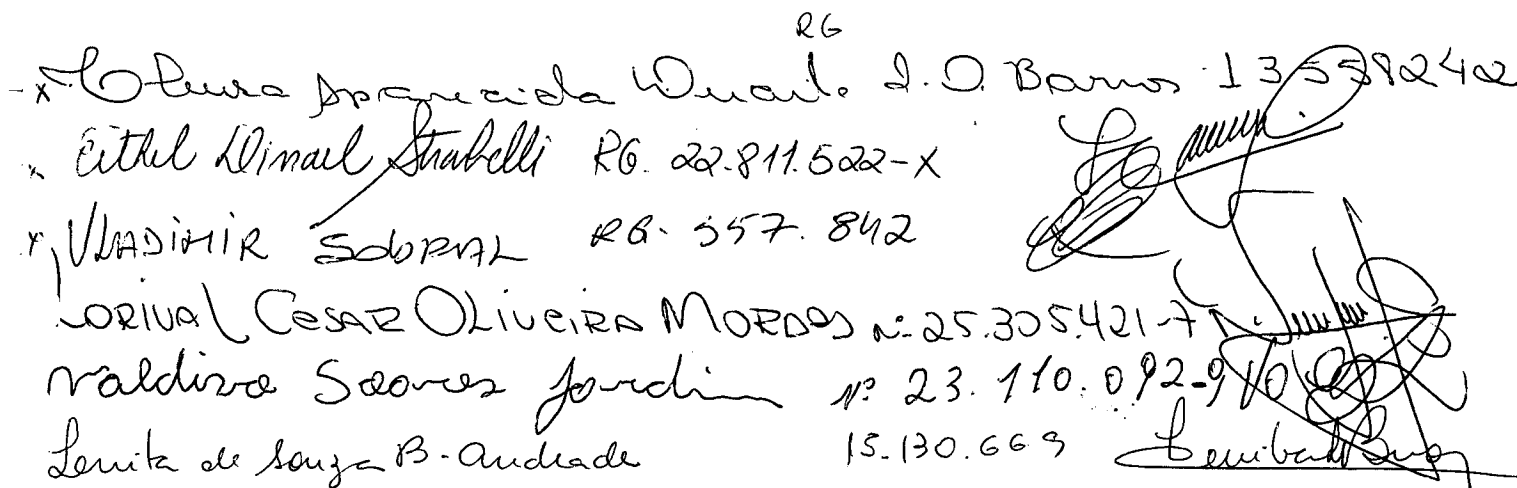 RG
-x Cleusa Aparecida Duarte D. O. Barros 13558242
x Eithel Dinael Strabelli RG. 22.811.522-X
x VLADIMIR RG. 557.842
LORIVAL CESAR OLIVEIRA MORAES nº 25.305.421-7
Valdiza Soares Jardim nº 23.110.092-9
Lenita de Souza B. Andrade 15.130.669